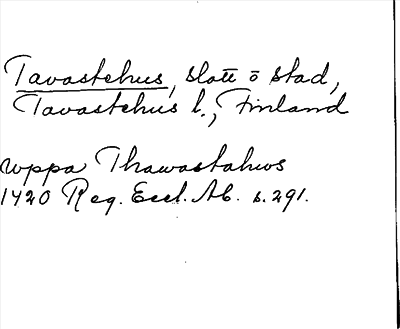 Tavastehus, slott o stad,
Tavastehus l., Finland
uppa Thawastahws
1420 Reg. Eccl. Ab. s. 291.